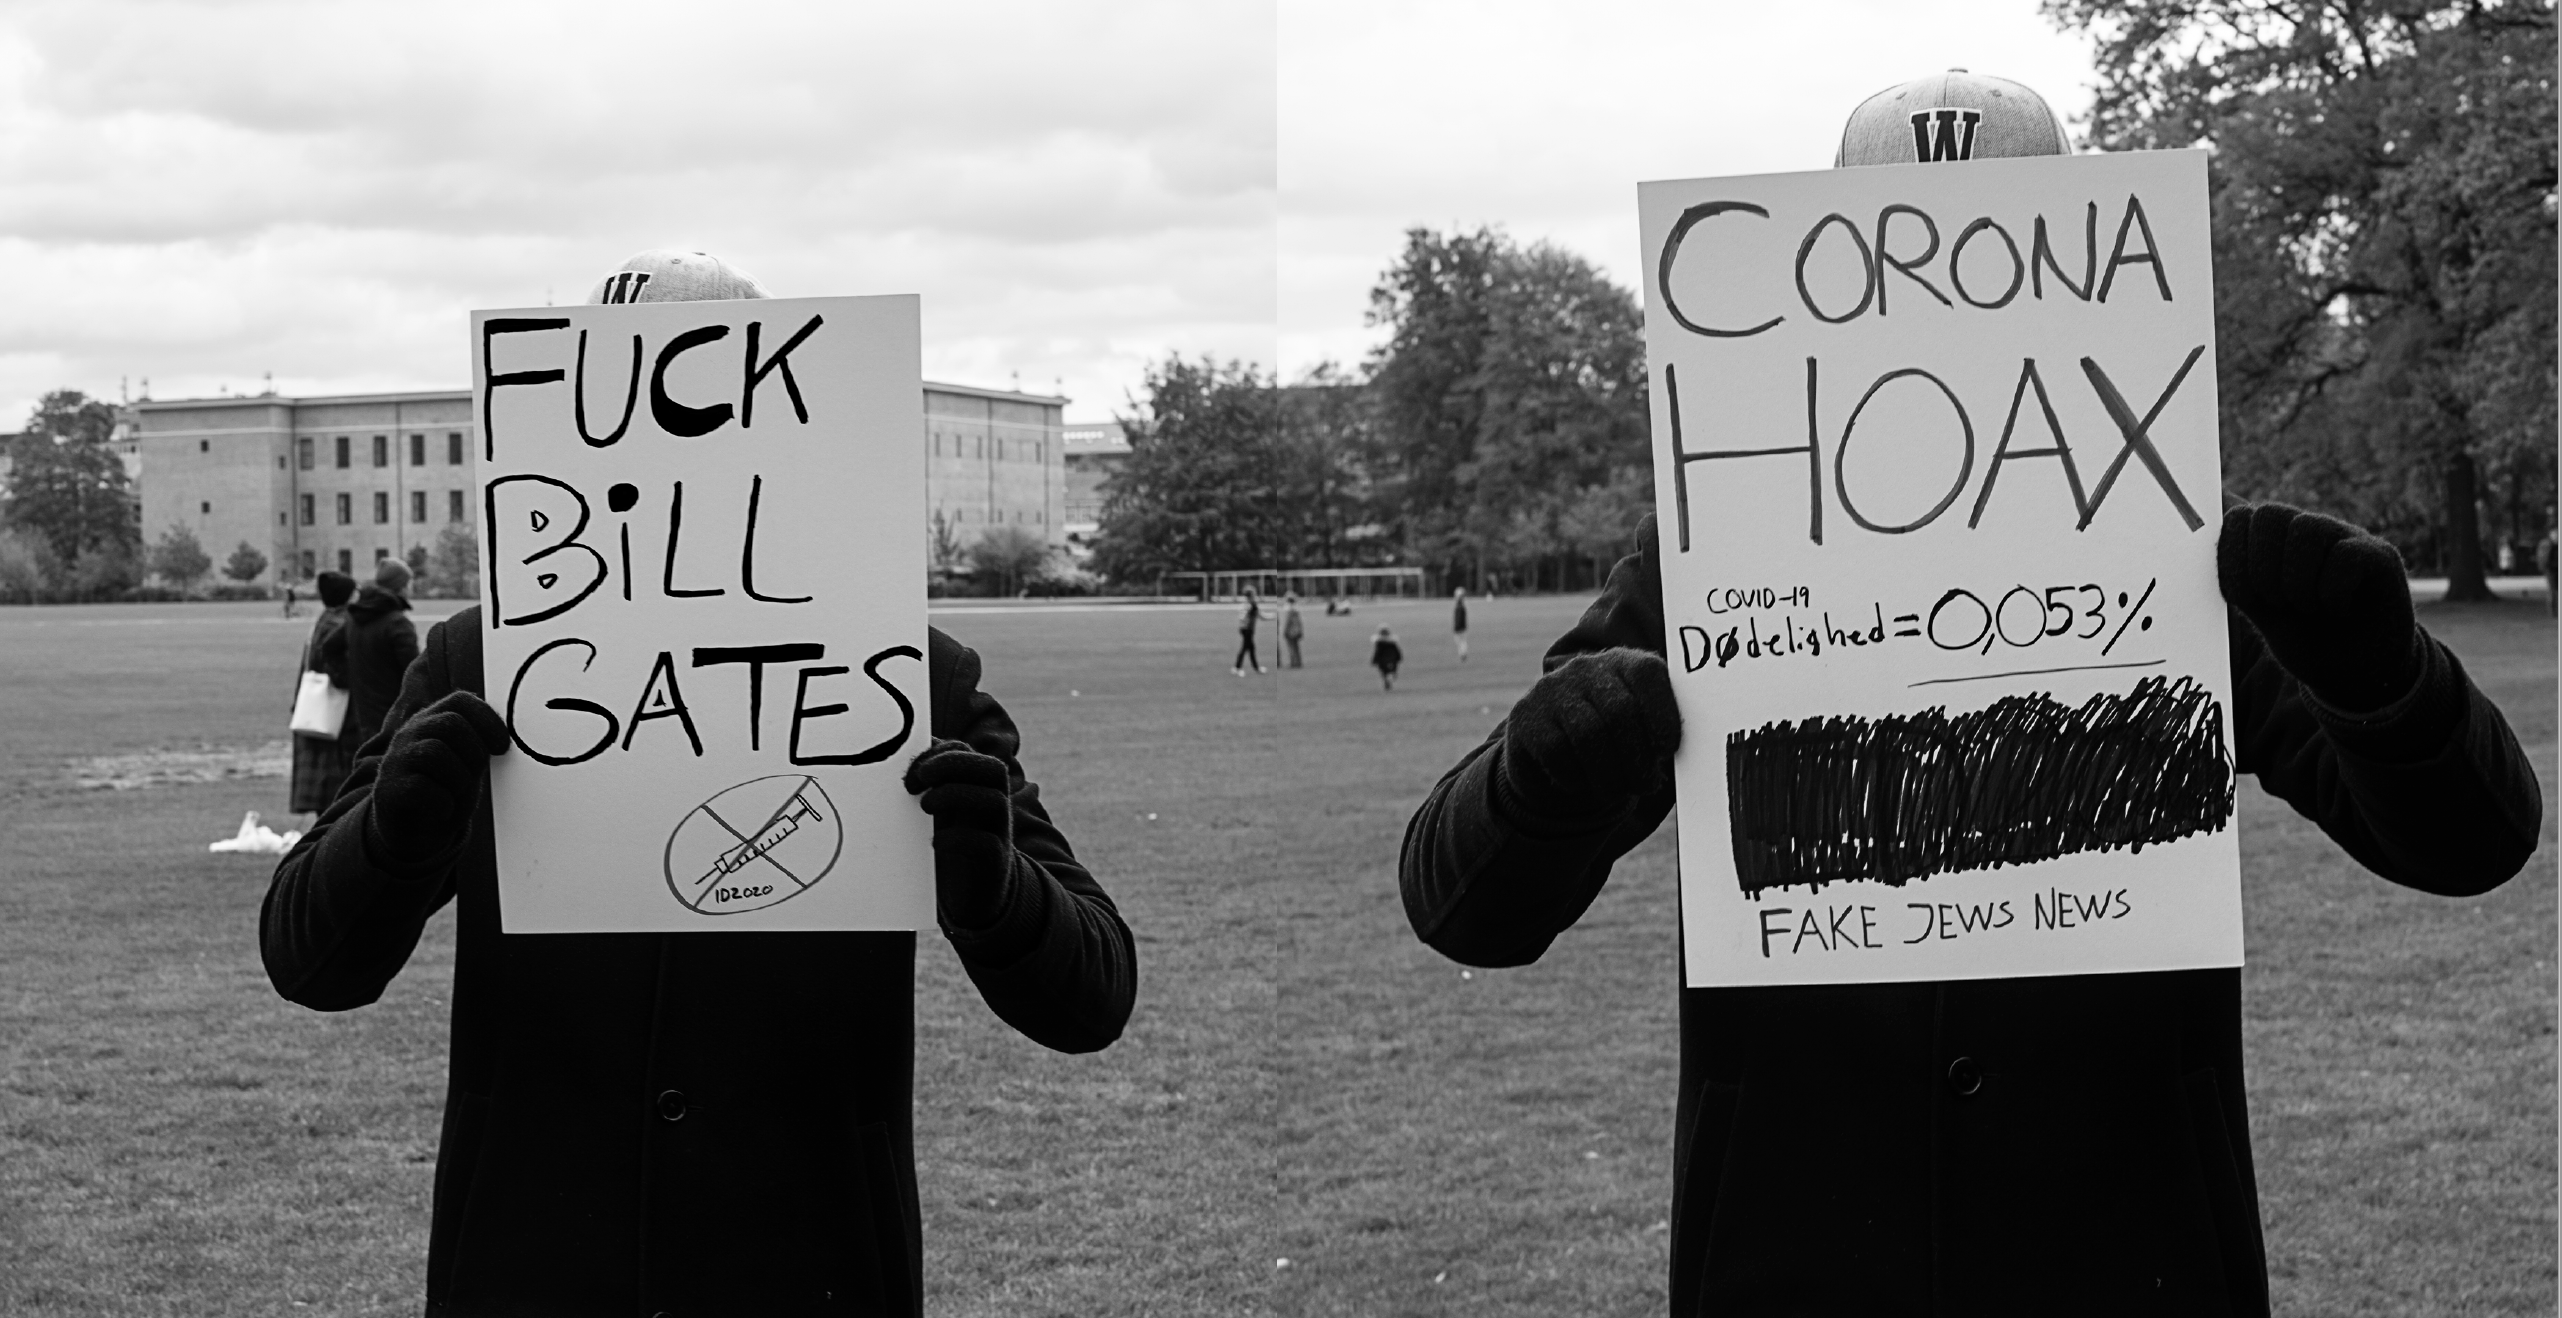 W
FUCK
BiLL
GATES
ID2020
W
CORONA
HOAX
COVID-19
Dødelighed = 0,053%
FAKE JEWS NEWS